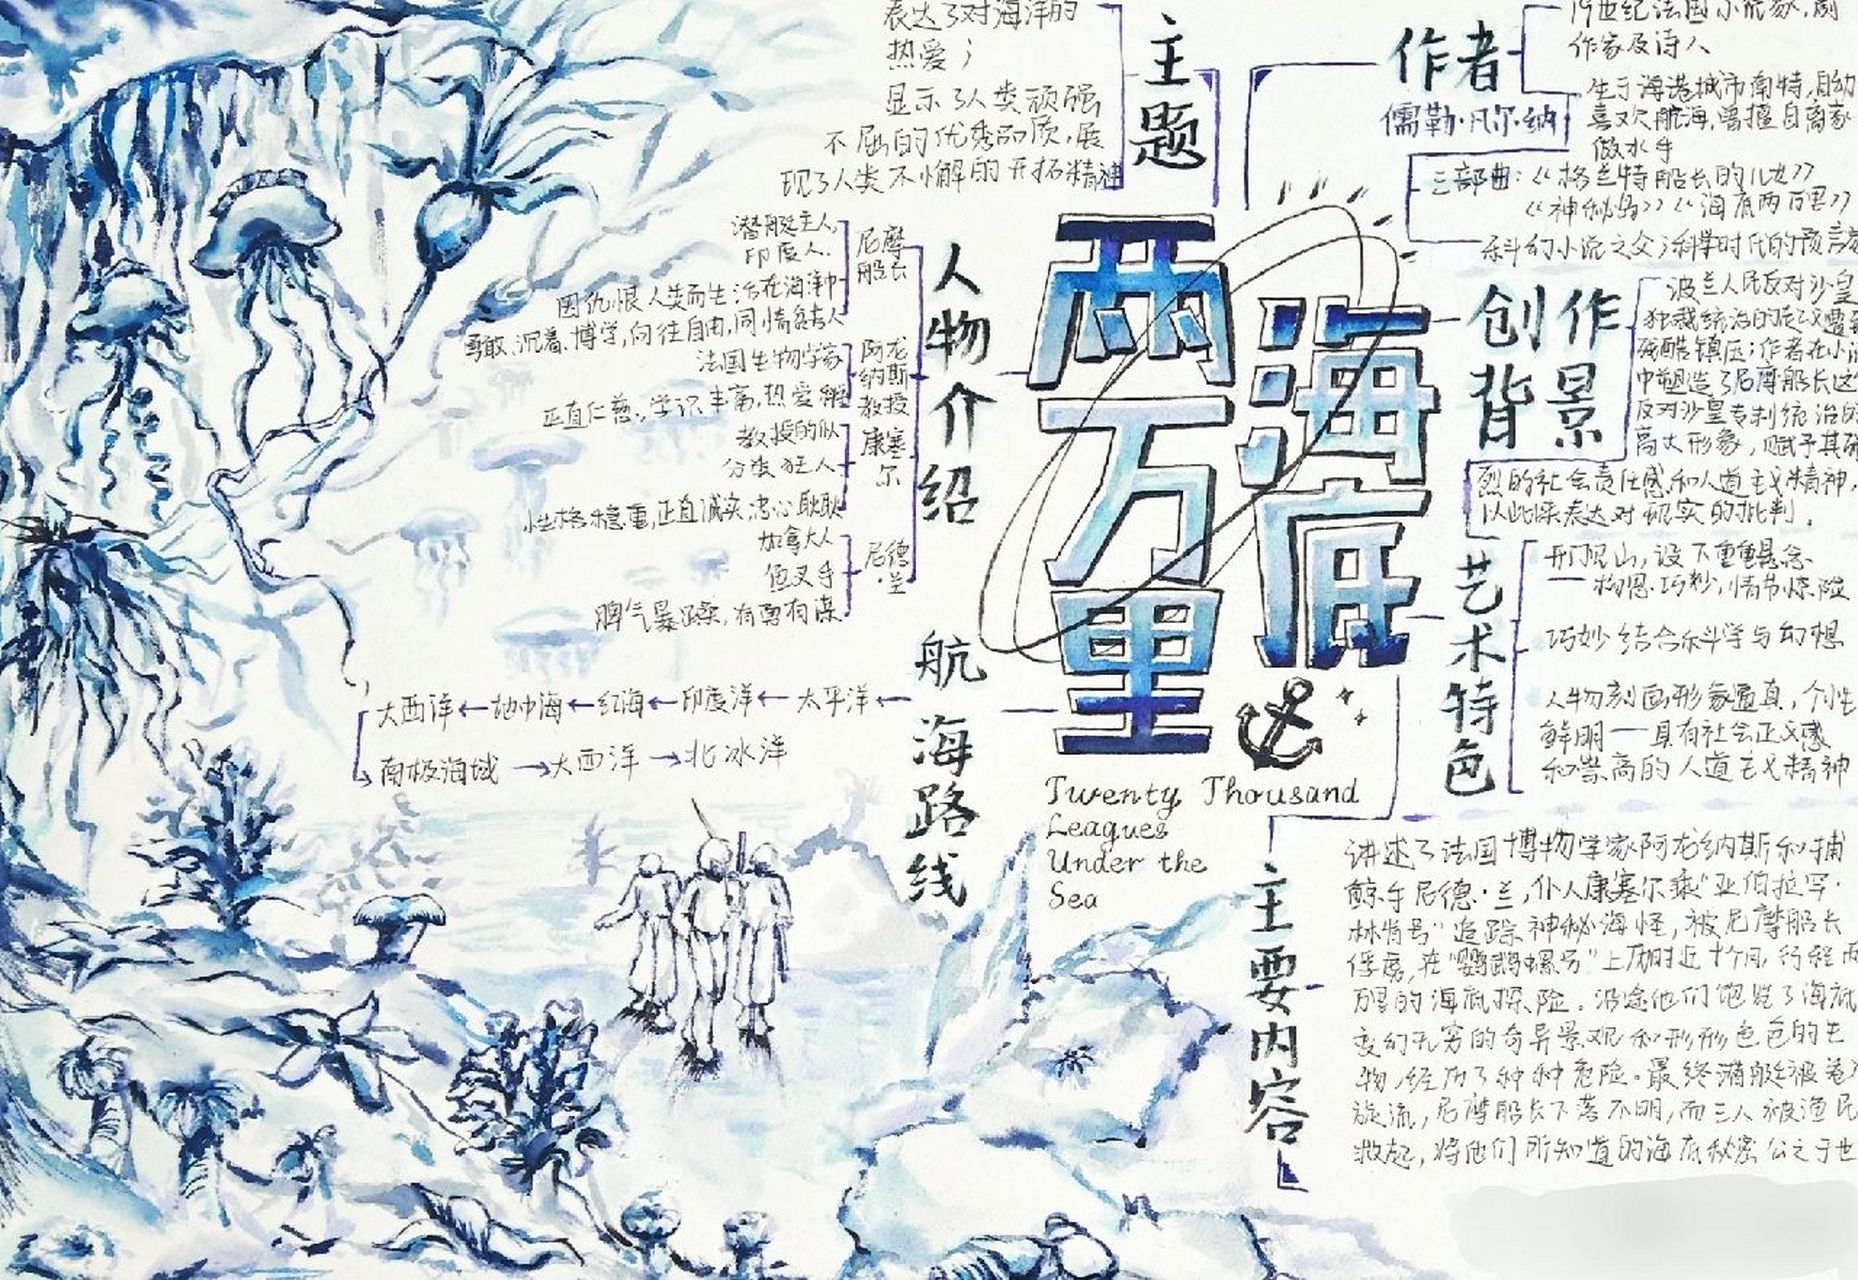 表达了对海洋的
热爱；
显示了人类顽强
不屈的优秀品质，展
现了人类不懈的开拓精神
主题
作者
儒勒·凡尔·纳
19世纪法国小说家，剧
作家及诗人
生于海港城市南特，自幼
喜欢航海，曾擅自离家
做水手
三部曲：《格兰特船长的儿女》
《神秘岛》《海底两万里》
科幻小说之父；科学时代的预言家
人物介绍
尼摩
船长
潜艇主人，
印度人．
因仇恨人类而生活在海洋中
勇敢、沉着、博学，向往自由，同情穷人
阿龙
纳斯
教授
法国生物学家
正直仁慈，学识丰富，热爱
康塞
尔
教授的仆
分类狂人
性格稳重，正直诚实，忠心耿耿
尼德
·兰
加拿大人
鱼叉手
脾气暴躁，有勇有谋
海底
两万里
Twenty Thousand
Leagues
Under the
Sea
创作
背景
波兰人民反对沙皇
独裁统治的起义遭到
残酷镇压；作者在小说
中塑造了尼摩船长这个
反对沙皇专制统治的
高大形象，赋予其强
烈的社会责任感和人道主义精神，
以此来表达对现实的批判．
艺术特色
设下重重悬念
构思巧妙，情节惊险
巧妙结合科学与幻想
人物刻画形象逼真，个性
鲜明——具有社会正义感
和崇高的人道主义精神
航海路线
大西洋←地中海←红海←印度洋←太平洋←
南极海域→大西洋→北冰洋
主要内容
讲述了法国博物学家阿龙纳斯和捕
鲸手尼德·兰，仆人康塞尔乘“亚伯拉罕·
林肯号”追踪神秘海怪，被尼摩船长
俘虏，在“鹦鹉螺号”上历时近十个月，行程两
万里的海底探险。沿途他们饱览了海底
变幻无穷的奇异景观和形形色色的生
物，经历了种种危险。最终潜艇被卷入
旋流，尼摩船长下落不明，而三人被渔民
救起，将他们所知道的海底秘密公之于世